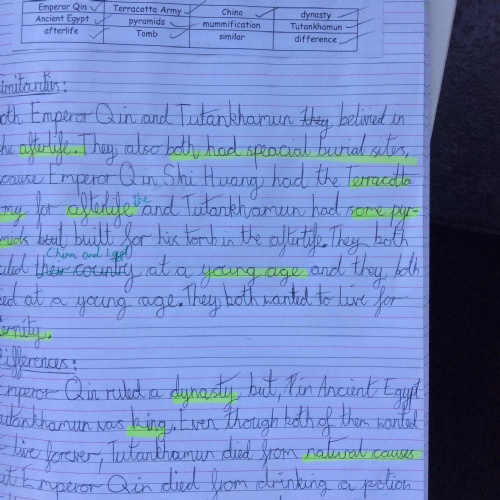 Emperor Qin Terracotta Army China dynasty
Ancient Egypt pyramids mummification Tutankhamun
afterlife Tomb similar difference
imilarities:
oth Emperor Qin and Tutankhamun they belived in
he afterlife. They also both had speacial burial sites,
cause Emperor Qin Shi Huang had the Terracotta
my for afterlife the and Tutankhamun had some pyr-
mids but built for his tomb in the afterlife. They both
China and Egypt
uled their country at a young age and they both
ied at a young age. They both wanted to live for
ternity.
ifferences:
mperor Qin ruled a dynasty, but, in Ancient Egypt
utankhamun was king. Even though both of them wanted
live forever, Tutankhamun died from natural causes
ut Emperor Qin died from drinking a potion